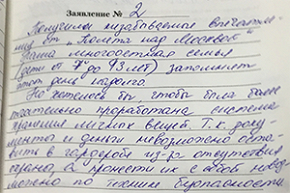 Заявление № 2
Получены незабываемые впечатле-
ния от "Полёта над Москвой"
Наша многодетная семья
(дети от 7 до 93 лет) запомнит
этот день надолго.
Но хотелось бы, чтобы была более
тщательно проработана система
хранения личных вещей. Т.к. доку-
менты и деньги невозможно оста-
вить в гардеробе из-за отсутствия
охраны, а пронести их с собой невоз-
можно по технике безопасности